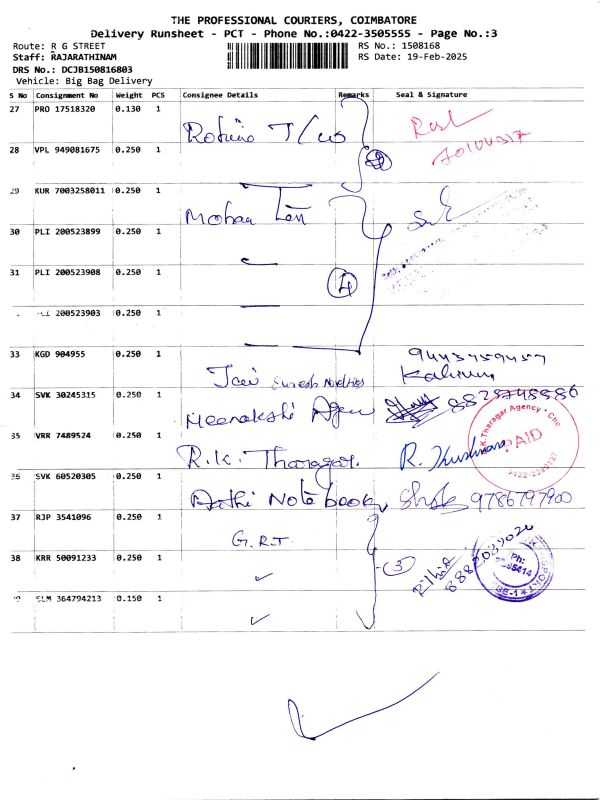 THE PROFESSIONAL COURIERS, COIMBATORE
Delivery Runsheet - PCT - Phone No.:0422-3505555 - Page No.:3
Route: R G STREET
RS No.: 1508168
Staff: RAJARATHINAM
RS Date: 19-Feb-2025
DRS No.: DCJB150816803
Vehicle: Big Bag Delivery
S No Consignment No Weight PCS Consignee Details Remarks Seal & Signature
27 PRO 17518320 0.130 1
28 VPL 949081675 0.250 1
29 KUR 7003258011 0.250 1
Mohan
30 PLI 200523899 0.250 1
31 PLI 200523908 0.250 1
4
PLI 200523903 0.250 1
33 KGD 904955 0.250 1
9443759457
Jai Suresh Novelties
34 SVK 30245315 0.250 1
Meenakshi Agen
35 VRR 7489524 0.250 1
R.K. Tharagar.
R.K.Tharagar Agency * Cbe
PAID
36 SVK 60520305 0.250 1
Arthi Notebook 9786797900
37 RJP 3541096 0.250 1
G.R.T.
38 KRR 50091233 0.250 1
3
8882039020
Ph:
SLM 364794213 0.150 1